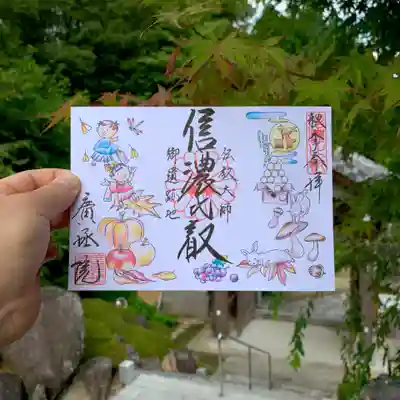 秋季奉拝
伝教大師
信濃比叡
御遺跡地
廣拯院